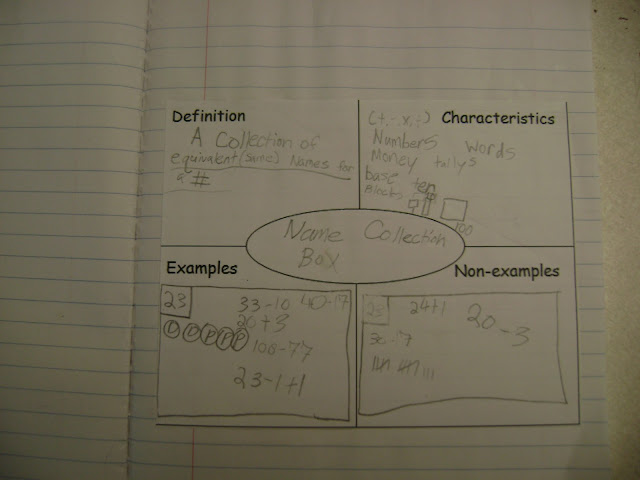 Definition
A Collection of
equivalent (same) Names for
a #
Characteristics
(+, -, x, ÷)
Numbers words
Money tallys
base ten
Blocks
100
Name Collection
Box
Examples
23
33-10 40-17
20+3
D D P P P 100-77
23-1+1
Non-examples
23 24+1 20-3
30-7